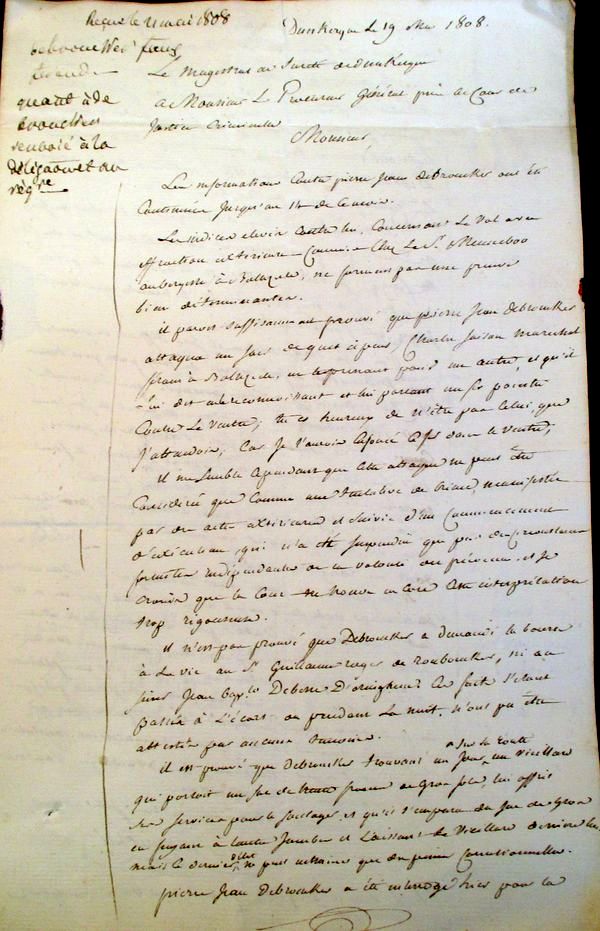 Reçu le 21 mai 1808
debroucker pierre
jean
quant à de
broucker
renvoié à la
au
règre
Dunkerque Le 19 Mai 1808.
Le magistrat de Sureté de dunkerque
a Monsieur Le Procureur Général près la Cour de
Justice Criminelle
Monsieur,
Les informations Contre pierre Jean debroucker ont été
Continuées Jusqu'au 14 de Ce mois.
Les indices elevés contre lui, Concernant Le Vol avec
effraction extérieure Commis Chez Le Sr
aubergiste à ne forment pas une preuve
bien déterminante.
il paroit suffisamment prouvé que pierre Jean Debroucker
attaqua un soir de guet à pens, Charles marechal
ferrant à en le prenant pour un autre, et qu'il
lui dit en le reconnoissant et lui portant un
Contre Le Ventre; tu es heureux de n'être pas Celui que
J'attendois, Car Je t'aurois dans le Ventre;
Il me semble Cependant que Cette attaque ne peut être
Considérée que Comme une tentative de Crime, manifestée
par des actes extérieures et Suivie d'un Commencement
d'exécution, qui n'a été suspendue que par des Circonstances
fortuites indépendantes de la volonté du prévenu, et Je
que la Cour trouve encore Cette interprétation
trop rigoureuse.
il n'est pas prouvé que Debroucker a demandé la bourse
à La vie au Sr Guillaume roger de ni au
Sieur Jean Bapte Ce fait S'étant
passé à L'écart ou pendant la nuit, n'ont pu être
attestés par aucuns témoins.
il est prouvé que Debroucker trouvant un Jour, sur la route un Vieillard
qui portoit un sac de de Gros lui offrit
ses services pour le soulager, et qu'il s'empara du Sac de Gros
en fuyant à toute Jambes et Laissant Le Vieillard derrière lui,
mais le dernier délit, ne peut entrainer que des peines Correctionnelles.
pierre Jean Debroucker a été interrogé hier pour la